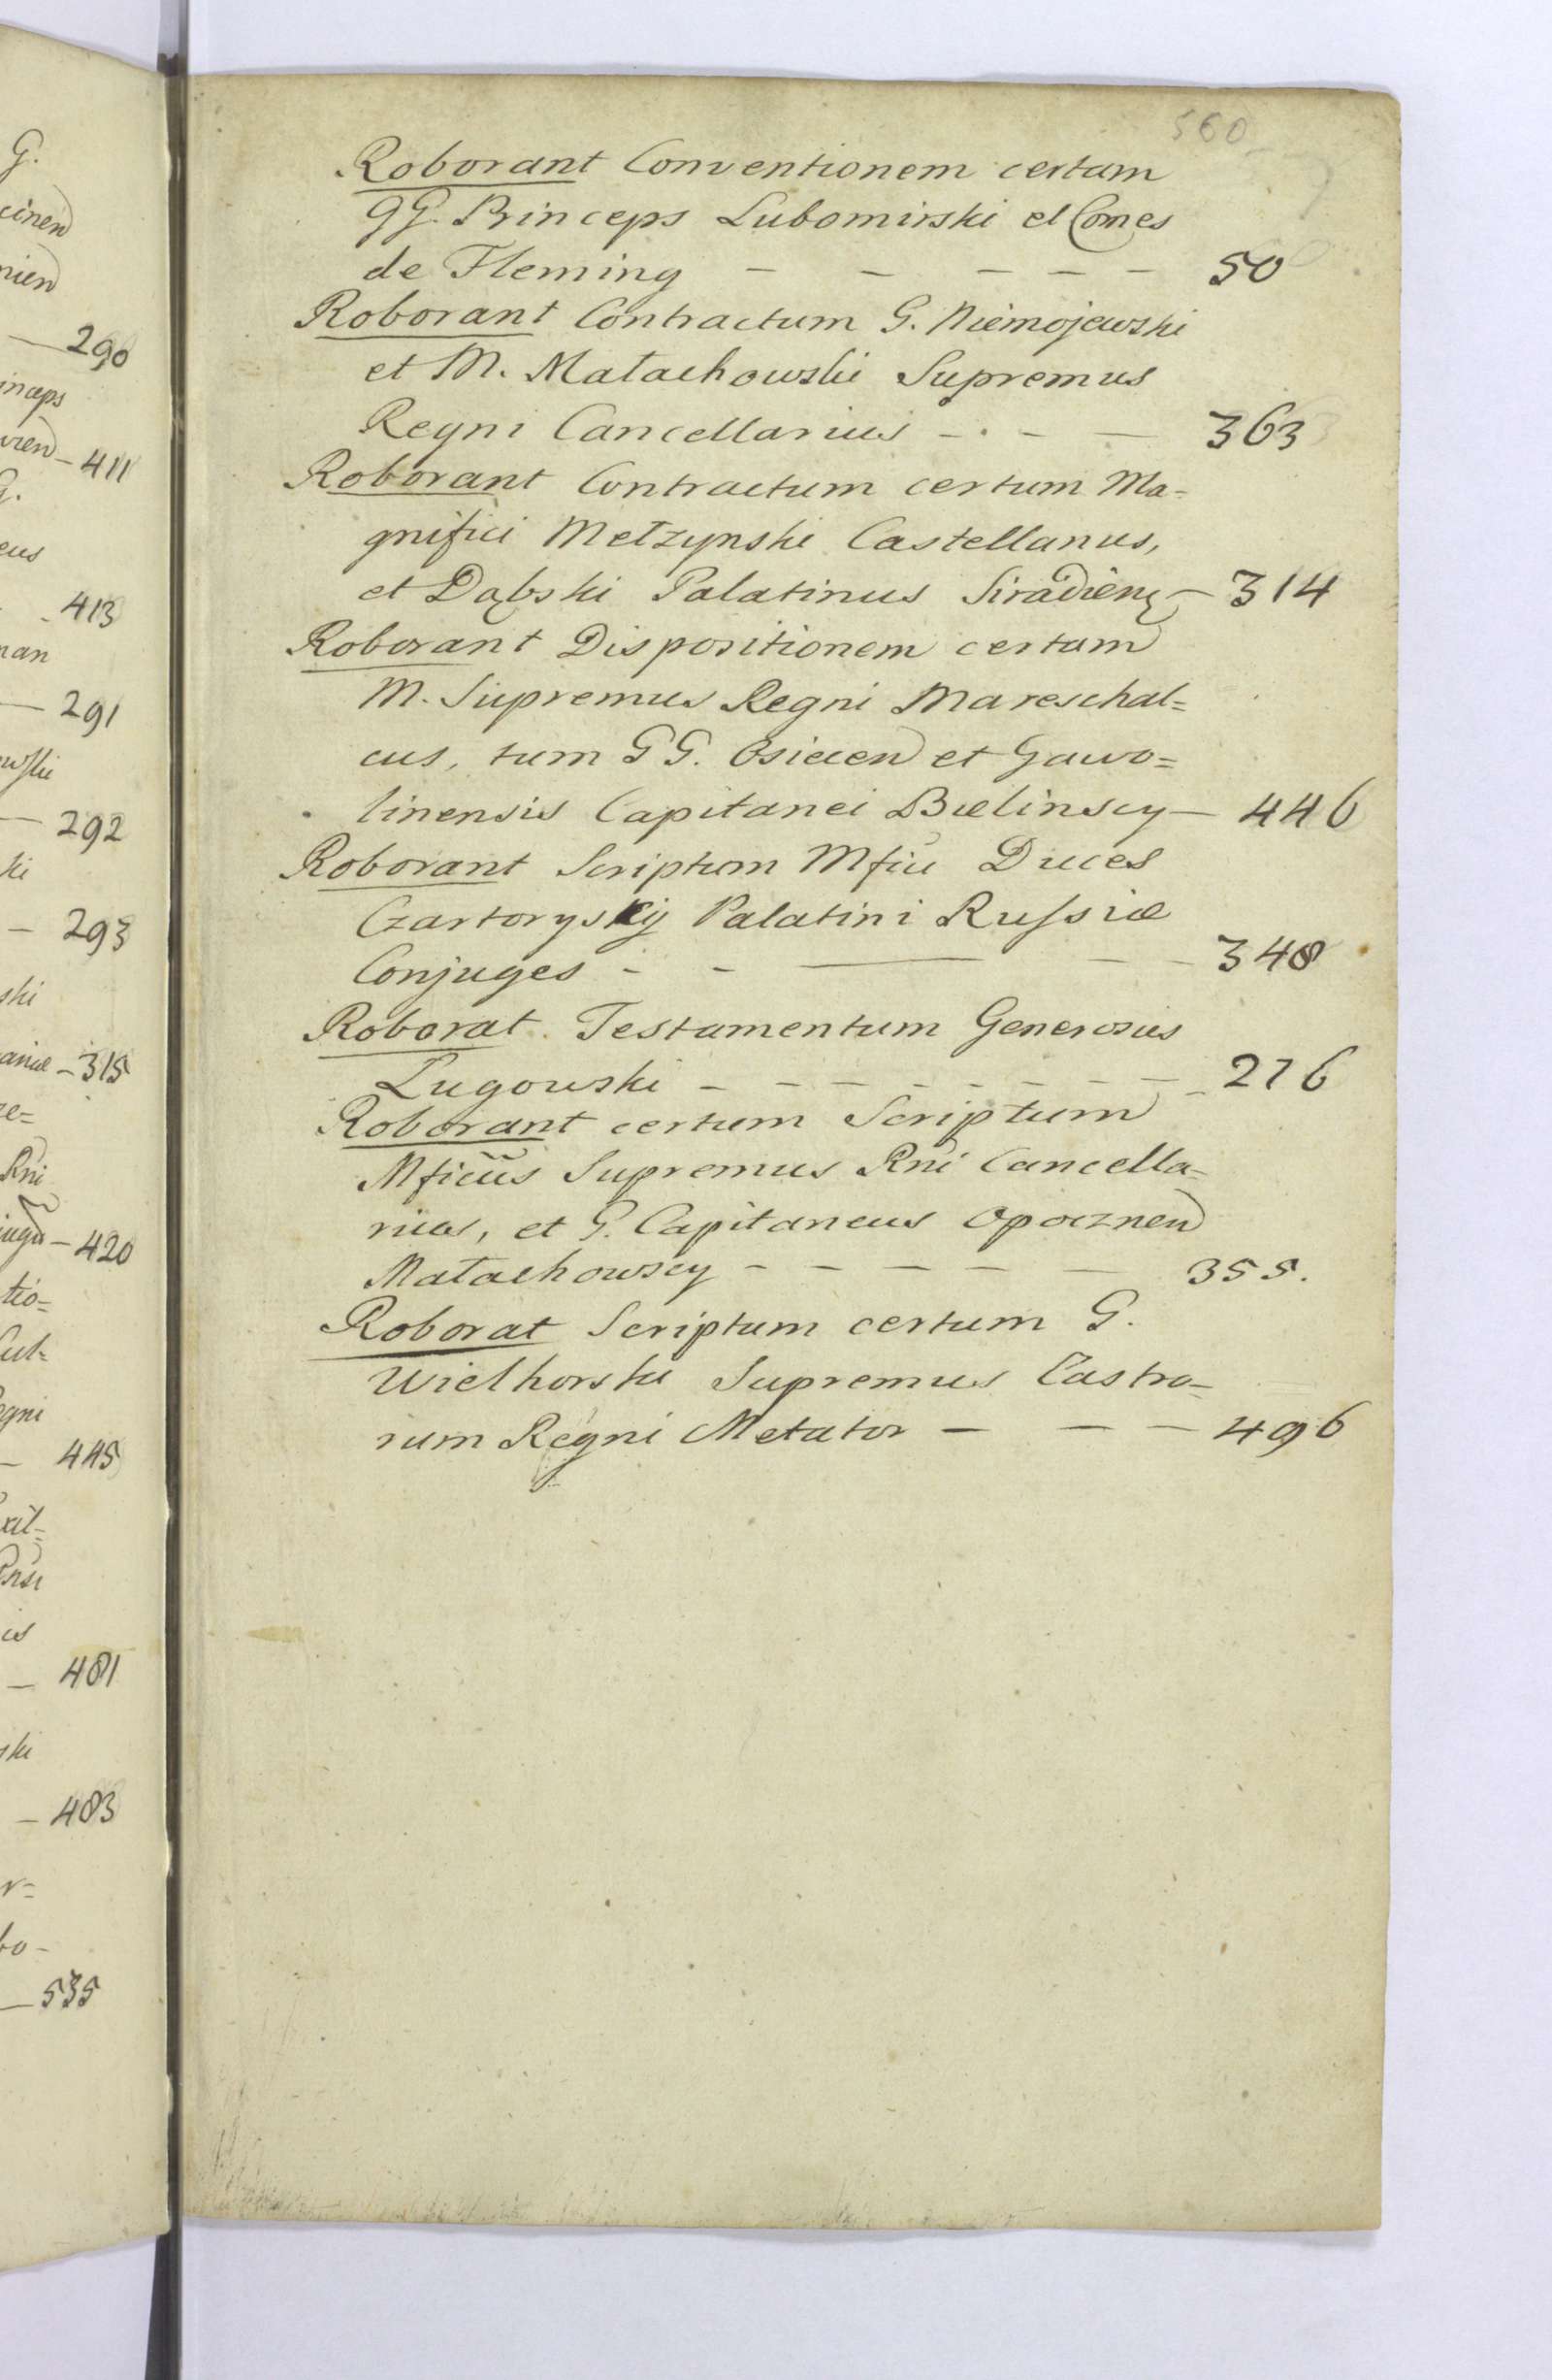 G.
cinen
nien
— 290
inceps
vien — 411
G.
eus
413
nan
— 291
— 292
ki
— 293
ski
aniæ — 315
re=
Rni
— 420
tio=
Cul=
egni
— 445
xil=
— 481
ski
— 483
r=
bo-
— 535
560
Roborant Conventionem certam
GG. Princeps Lubomirski et Comes
de Fleming — — — — — 50
Roborant Contractum G. Niemojewski
et M. Małachowski Supremus
Regni Cancellarius — . — — 363
Roborant Contractum certum Ma=
gnifici Mełzynski Castellanus,
et Dąbski Palatinus Siradien — 314
Roborant Dispositionem certam
M. Supremus Regni Mareschal=
cus, tum GG. Osiecen et Garwo=
linensis Capitanei Bielinscy — 446
Roborant Scriptum Mfici Duces
Czartoryskij Palatini Russiæ
Conjuges - - — — — 348
Roborat Testamentum Generosus
Ługowski — — — — — — — — 276
Roborant certum Scriptum
Mficus Supremus Rni Cancella=
rius, et G. Capitaneus Opocznen
Małachowscy — — — — — 355.
Roborat Scriptum certum G.
Wielhorski Supremus Castro=
rum Regni Metator — — — 496